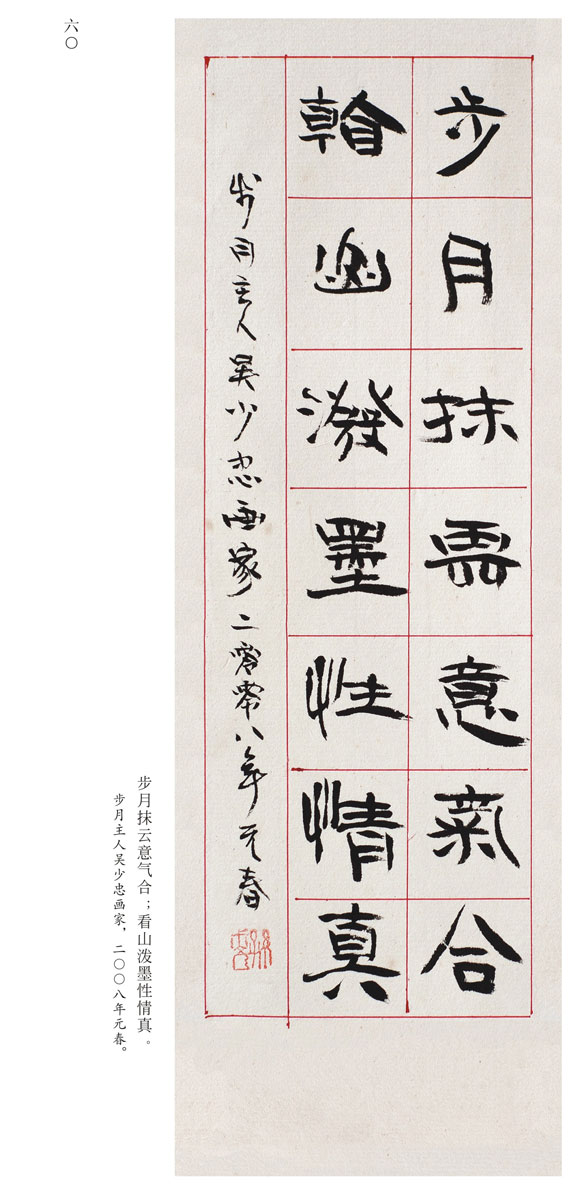 步月抹雲意氣合
看山潑墨性情真
步月主人吴少忠画家二零零八年元春
步月抹云意气合；看山泼墨性情真。
步月主人吴少忠画家，二〇〇八年元春。
六〇